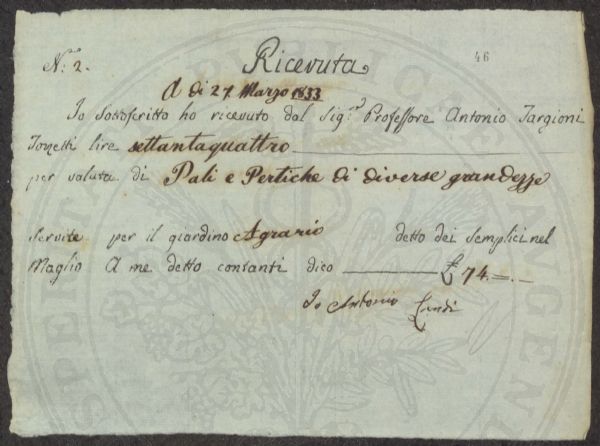 46
N: 2.
Ricevuta
A di 27 Marzo 1833
Io Sottoscritto ho ricevuto dal Sig.r Professore Antonio Targioni
Tozzetti lire settantaquattro
per valuta di Pali e Pertiche di diverse grandezze
servite per il giardino Agrario detto dei Semplici nel
Maglio A me detto contanti dico £ 74.=.-
Io Antonio